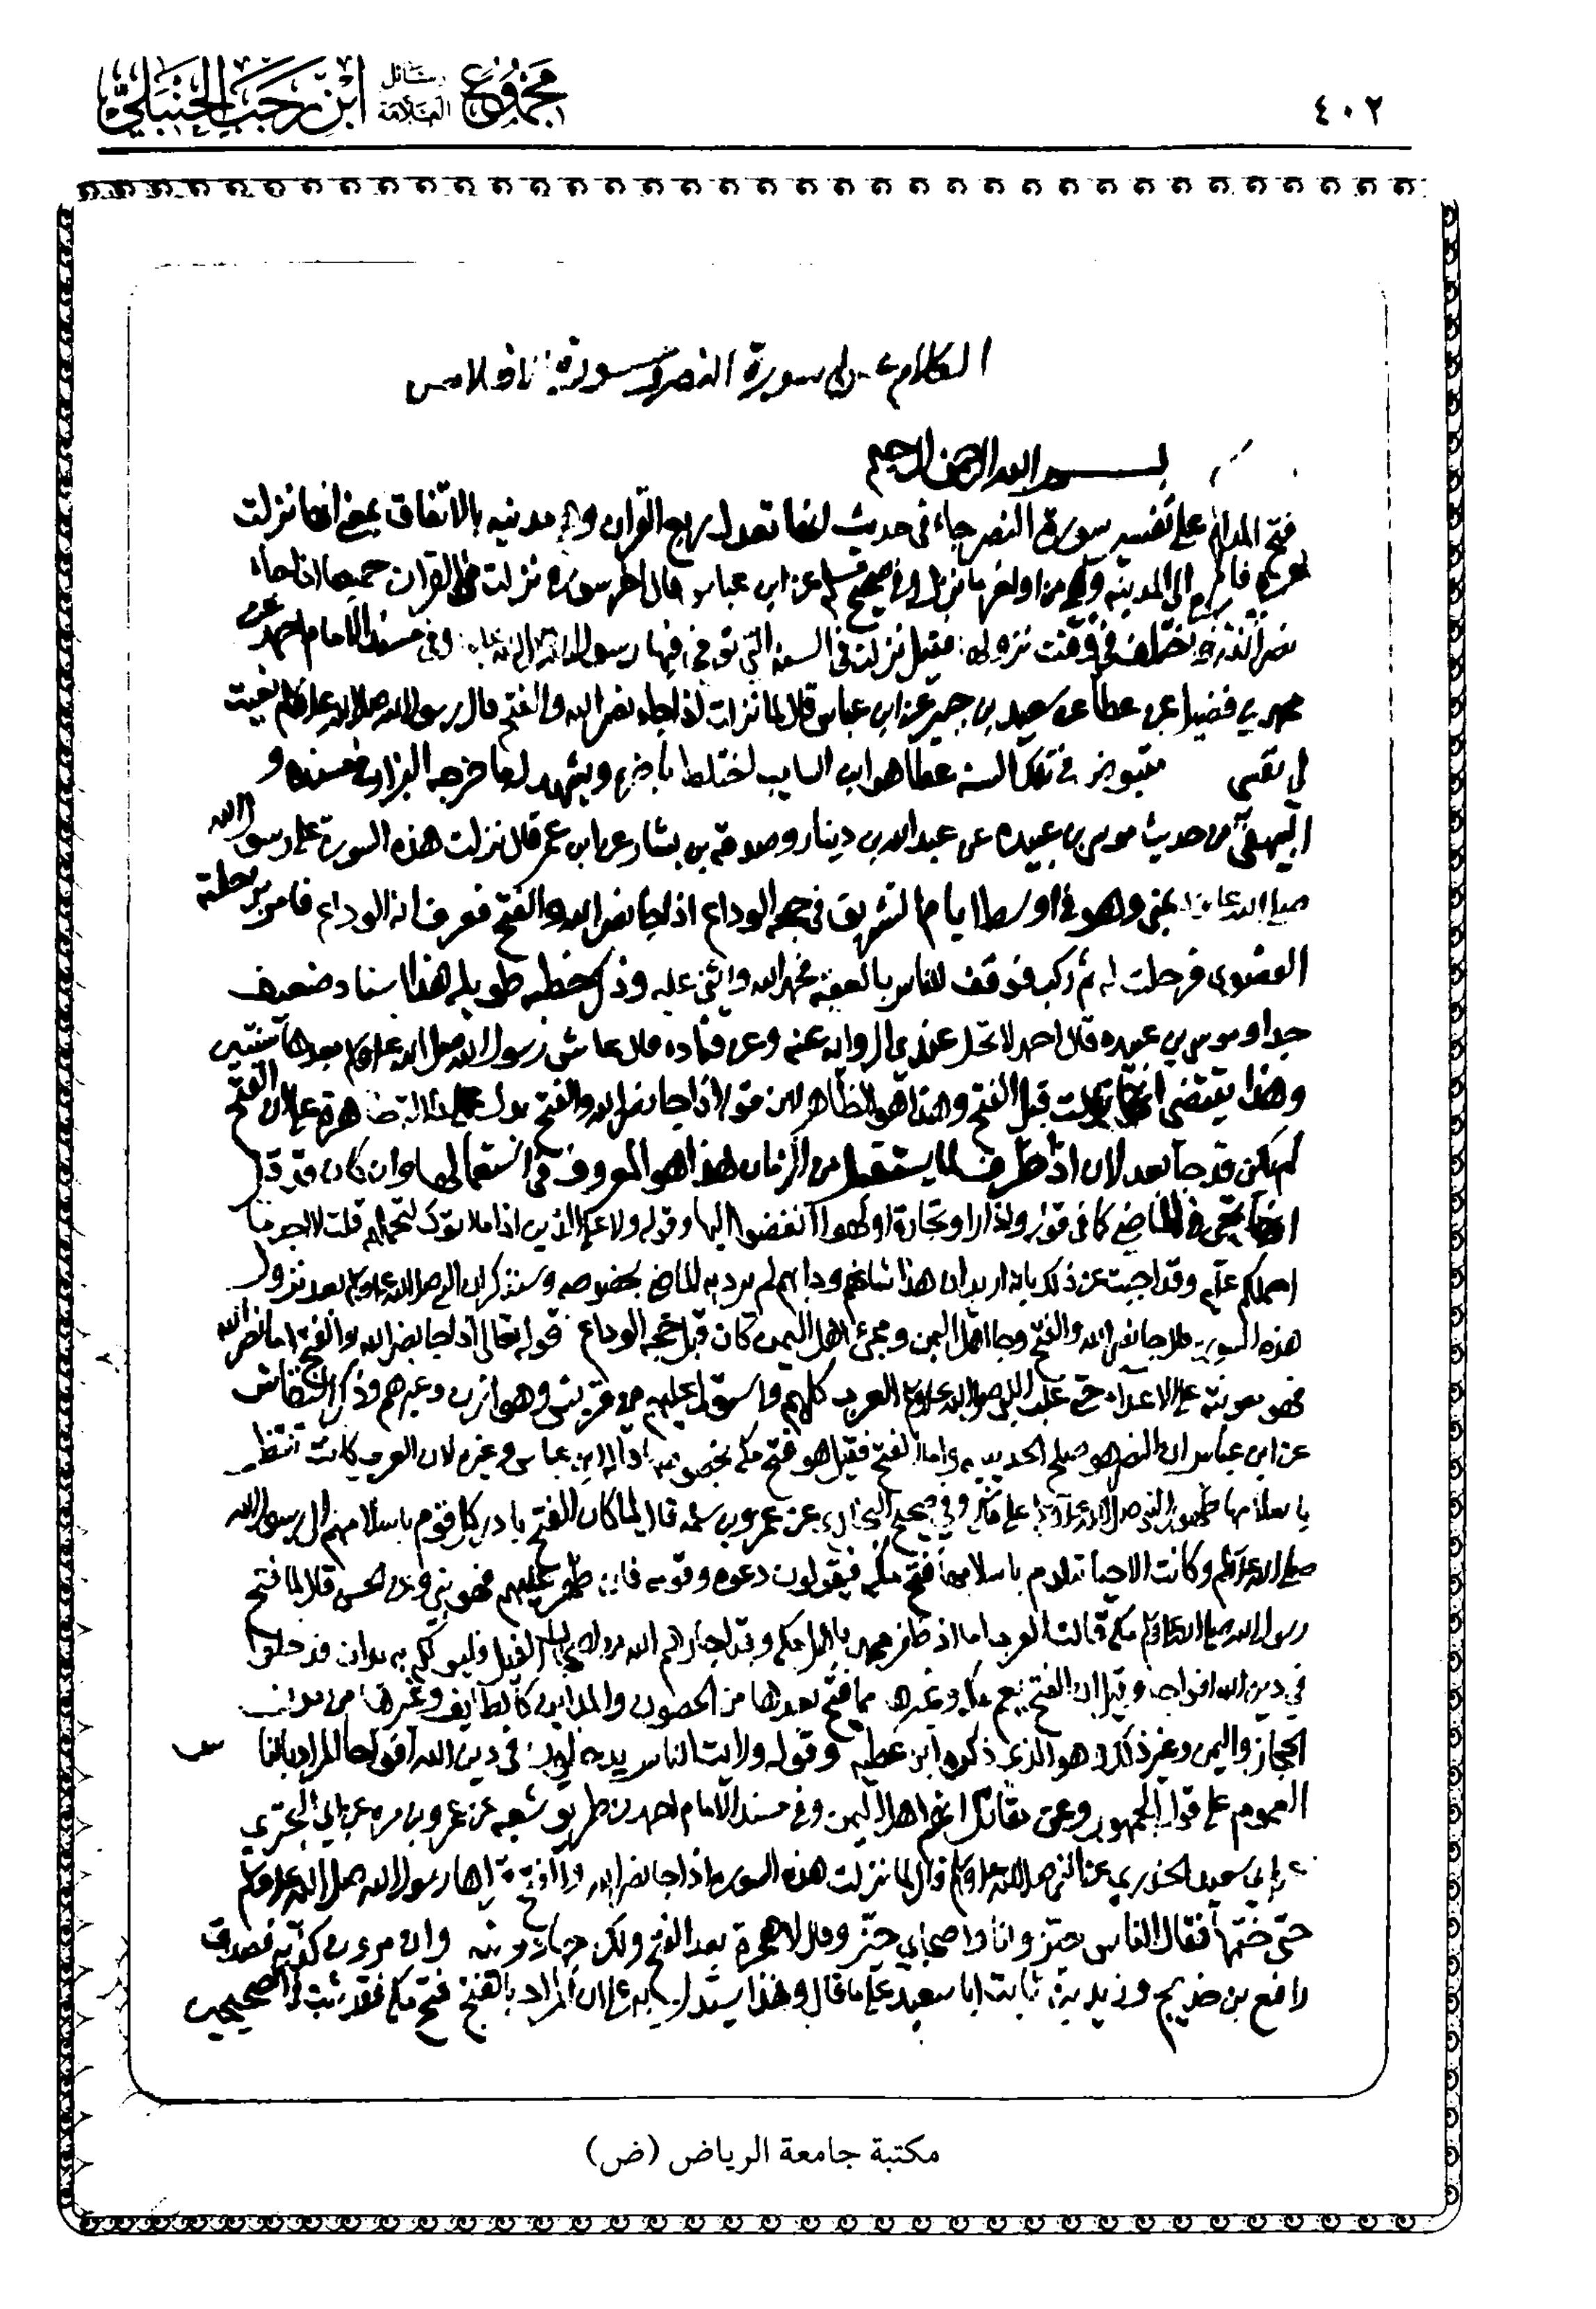 مجموع رسائل العلامة ابن رجب الحنبلي
٤٠٢
الكلام على سورة النصر
بسم الله الرحمن الرحيم
على تفسير سورة النصر جاء في حديث انها تعدل ربع القران وهي مدنيه بالاتفاق بمعنى انها نزلت
الى المدينه وهي من اواخر ما نزل وفي صحيح مسلم عن ابن عباس قال اخر سوره نزلت من القران جميعا اذا جاء
نصر الله واختلف في وقت نزولها فقيل نزلت في السنه التي توفي فيها رسول الله وفي مسند الامام احمد عن
محمد بن فضيل عن عطا عن سعيد بن جبير عن ابن عباس قال لما نزلت اذا جاء نصر الله والفتح قال رسول الله صلى الله عليه وسلم نعيت
الى نفسي مقبوض في تلك السنه عطا هو ابن السايب اختلط باخره ويشهد لما خرجه البزار في مسنده و
البيهقي من حديث موسى بن عبيده عن عبد الله بن دينار وصدقه بن بشار عن ابن عمر قال نزلت هذه السورة على رسول الله
صلى الله عليه بمنى وهو في اوسط ايام التشريق في حجه الوداع اذا جا نصر الله والفتح فعرف انه الوداع فامر براحلته
القصوى فرحلت له ثم ركب فوقف للناس بالعقبه فحمد الله واثنى عليه وذكر خطبه طويله هذا اسناد ضعيف
جدا وموسى بن عبيده قال احمد لا تحل عندي الروايه عنه وعن قتاده قال عاش رسول الله صلى الله عليه وسلم بعدها سنتين
وهذا يقتضي انها نزلت قبل الفتح وهذا هو الظاهر لان قوله اذا جا نصر الله والفتح يدل ظاهرة على ان الفتح
لم يكن قد جا بعد لان اذا ظرف لما يستقبل من الزمان هذا هو المعروف في استعمالها وان كان قد قيل
انها تجي في الماضي كما في قوله واذا راوا تجارة او لهوا انفضوا اليها وقوله ولا على الذين اذا ما اتوك لتحملهم قلت لا اجد ما
احملكم عليه وقد اجيب عن ذلك بانه اريد ان هذا شانهم ودابهم لم يرد به الماضي بخصوصه وسنذكر ان النبي صلى الله عليه وسلم بعد نزول
هذه السوره قال جا نصر الله والفتح وجا اهل اليمن ومجئ اهل اليمن كان قبل حجه الوداع قوله تعالى اذا جا نصر الله والفتح اما نصر الله
فهو معونته على الاعداء حتى غلب النبي صلى الله عليه وسلم العرب كلهم واستولى عليهم من قريش وهوازن وغيرهم وذكر النقاش
عن ابن عباس ان النصر هو صلح الحديبيه واما الفتح فقيل هو فتح مكه بخصوصه قاله ابن عباس وغيره لان العرب كانت تنتظر
باسلامها ظهور النبي صلى الله عليه وسلم على مكه وفي صحيح البخاري عن عمرو بن سلمه قال لما كان الفتح بادر كل قوم باسلامهم الى رسول الله
صلى الله عليه وسلم وكانت الاحيا تلوم باسلامها فتح مكه فيقولون دعوه وقومه فان ظهر عليهم فهو نبي وعن الحسن قال لما فتح
رسول الله صلى الله عليه وسلم مكه قالت العرب اما اذ ظفر محمد باهل مكه وقد اجارهم الله من اصحاب الفيل فليس لكم به يدان فدخلوا
في دين الله افواجا وقيل ان الفتح يعم مكه وغيرها مما فتح بعدها من الحصون والمداين كالطايف وغيرها من مدن
الحجاز واليمن وغير ذلك وهو الذي ذكره ابن عطيه وقوله ورايت الناس يدخلون في دين الله افواجا المراد بالنا س
العموم على قول الجمهور وعن مقاتل انهم اهل اليمن وفي مسند الامام احمد من طريق شعبه عن عمرو بن مره عن ابي البختري
عن ابي سعيد الخدري عن النبي صلى الله عليه وسلم قال لما نزلت هذه السوره اذا جا نصر الله والفتح قراها رسول الله صلى الله عليه وسلم
حتى ختمها فقال الناس حيز وانا واصحابي حيز وقال لا هجرة بعد الفتح ولكن جهاد ونيه وان مروان كذبه فصدق
رافع بن خديج وزيد بن ثابت ابا سعيد على ما قال وهذا يستدل به على ان المراد بالفتح فتح مكه فقد ثبت في الصحيحين
مكتبة جامعة الرياض (ض)